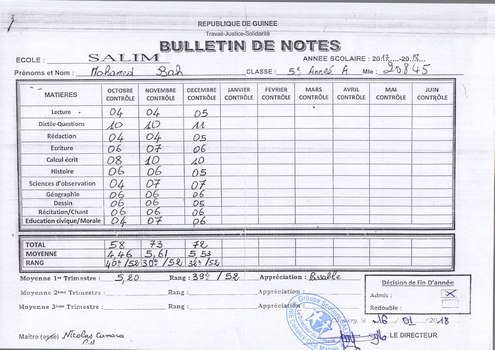 REPUBLIQUE DE GUINEE
Travail-Justice-Solidarité
BULLETIN DE NOTES
ECOLE : SALIM ANNÉE SCOLAIRE : 2017....-20.18...
Prénoms et Nom : Mohamed Bah CLASSE : 5e Année A Mle : 20845
MATIERES OCTOBRE CONTRÔLE NOVEMBRE CONTRÔLE DECEMBRE CONTRÔLE JANVIER CONTRÔLE FEVRIER CONTRÔLE MARS CONTRÔLE AVRIL CONTRÔLE MAI CONTRÔLE JUIN CONTRÔLE
Lecture 04 04 05
Dictée-Questions 10 10 11
Rédaction 04 04 05
Ecriture 06 07 06
Calcul écrit 08 10 10
Histoire 06 06 05
Sciences d'observation 04 07 07
Géographie 06 06 06
Dessin 06 06 05
Récitation/Chant 06 06 06
Education civique/Morale 04 07 06
TOTAL 58 73 72
MOYENNE 4,46 5,61 5,53
RANG 40e /52 30e /52 32e /52
Moyenne 1er Trimestre : 5,20 Rang : 39e / 52 Appréciation : Passable
Moyenne 2ème Trimestre : Rang : Appréciation :
Moyenne 3ème Trimestre : Rang : Appréciation :
Décision de Fin D'année
Admis : X
Redouble :
Groupe Scolaire
16 01 2018
Maître (esse) Nicolas Camara
LE DIRECTEUR